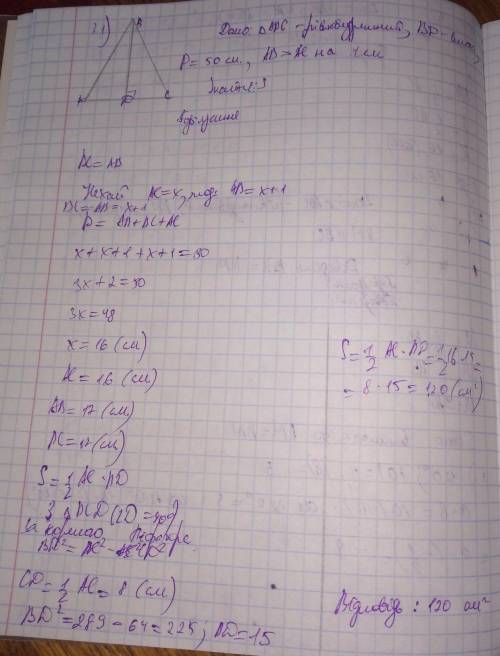 21)
B
A D C
Дано: △ABC - рівнобедрений, BD - висота,
P = 50 см, AB > AC на 1 см
Знайти: S
BC = AB
Нехай AC = x, тоді AB = x+1
BC = AB = x+1
P = AB + BC + AC
x + x+1 + x+1 = 50
3x + 2 = 50
3x = 48
x = 16 (см)
AC = 16 (см)
AB = 17 (см)
BC = 17 (см)
S = 1/2 AC · BD
З △BCD (∠D = 90°)
за теоремою Піфагора
CD = 1/2 AC = 8 (см)
BD² = 289 - 64 = 225; BD = 15
S = 1/2 AC · BD = 1/2 16 · 15 =
= 8 · 15 = 120 (см²)
Відповідь: 120 см²